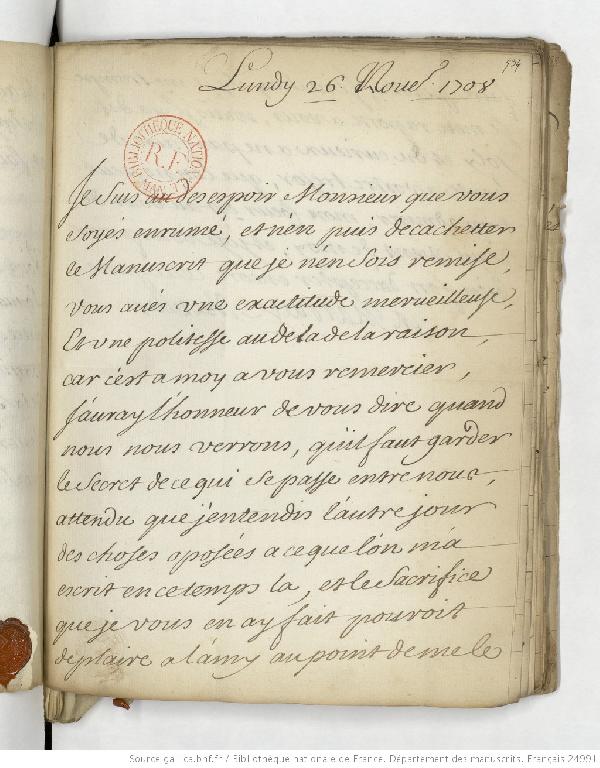 Lundy 26. Nouer. 1708
534
BIBLIOTHEQUE NATIONALE
R.F.
MAN.
Je Suis au desespoir Monsieur que vous
Soyés enrumé, et n'en puis decachetter
le Manuscrit que je n'en Sois remise,
vous aués vne exactitude merueilleuse,
Et vne politesse audela de la raison,
car c'est a moy a vous remercier,
J'auray l'honneur de vous dire quand
nous nous verrons, qu'il faut garder
le Secret de ce qui Se passe entre nous,
attendu que j'entendis l'autre jour
des choses oposées a ce que l'on m'a
escrit en ce temps la, et le Sacrifice
que je vous en ay fait pouroit
deplaire a l'amy au point de me le
Source gallica.bnf.fr / Bibliothèque nationale de France. Département des manuscrits. Français 24991